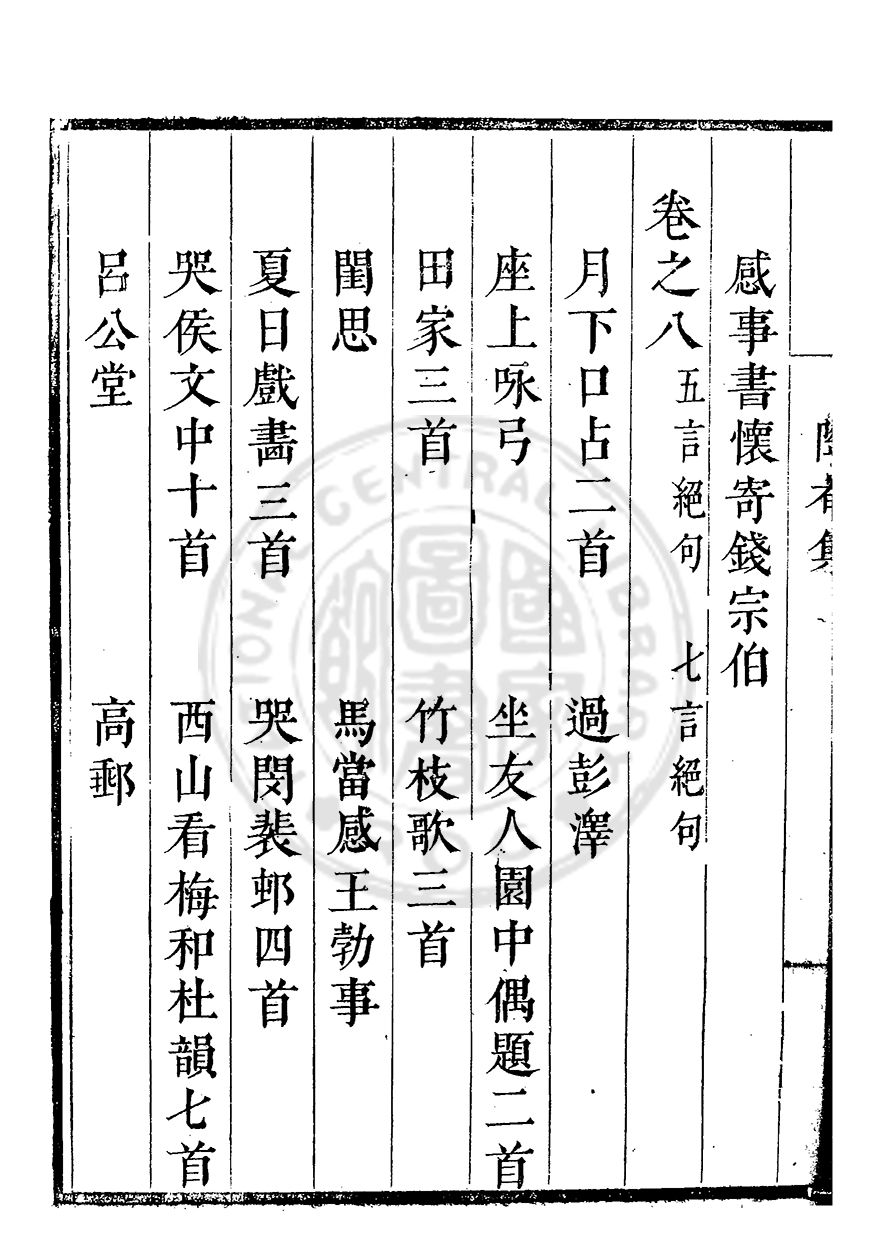 感事書懷寄錢宗伯
卷之八 五言絕句 七言絕句
月下口占二首 過彭澤
座上咏弓 坐友人園中偶題二首
田家三首 竹枝歌三首
閨思 馬當感王勃事
夏日戲畵三首 哭閔裴邨四首
哭侯文中十首 西山看梅和杜韻七首
呂公堂 高郵
國家圖書館
CENTRAL LIBRARY